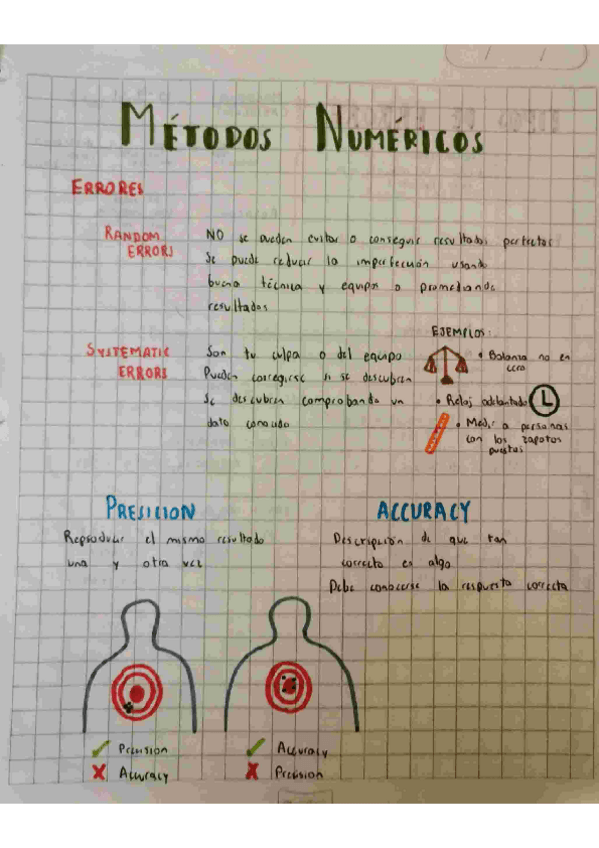 MÉTODOS NUMÉRICOS
ERRORES
RANDOM ERRORS
NO se pueden evitar o conseguir resultados perfectos
Se puede reducir la imperfección usando
buena técnica y equipos o promediando
resultados
SYSTEMATIC ERRORS
Son tu culpa o del equipo
Pueden corregirse si se descubren
Se descubren comprobando un
dato conocido
EJEMPLOS:
• Balanza no en
cero
• Reloj adelantado
• Medir a personas
con los zapatos
puestos
PRESICION
Reproducir el mismo resultado
una y otra vez
ACCURACY
Descripción de que tan
correcto es algo
Debe conocerse la respuesta correcta
✓ Precision
X Accuracy
✓ Accuracy
X Precision